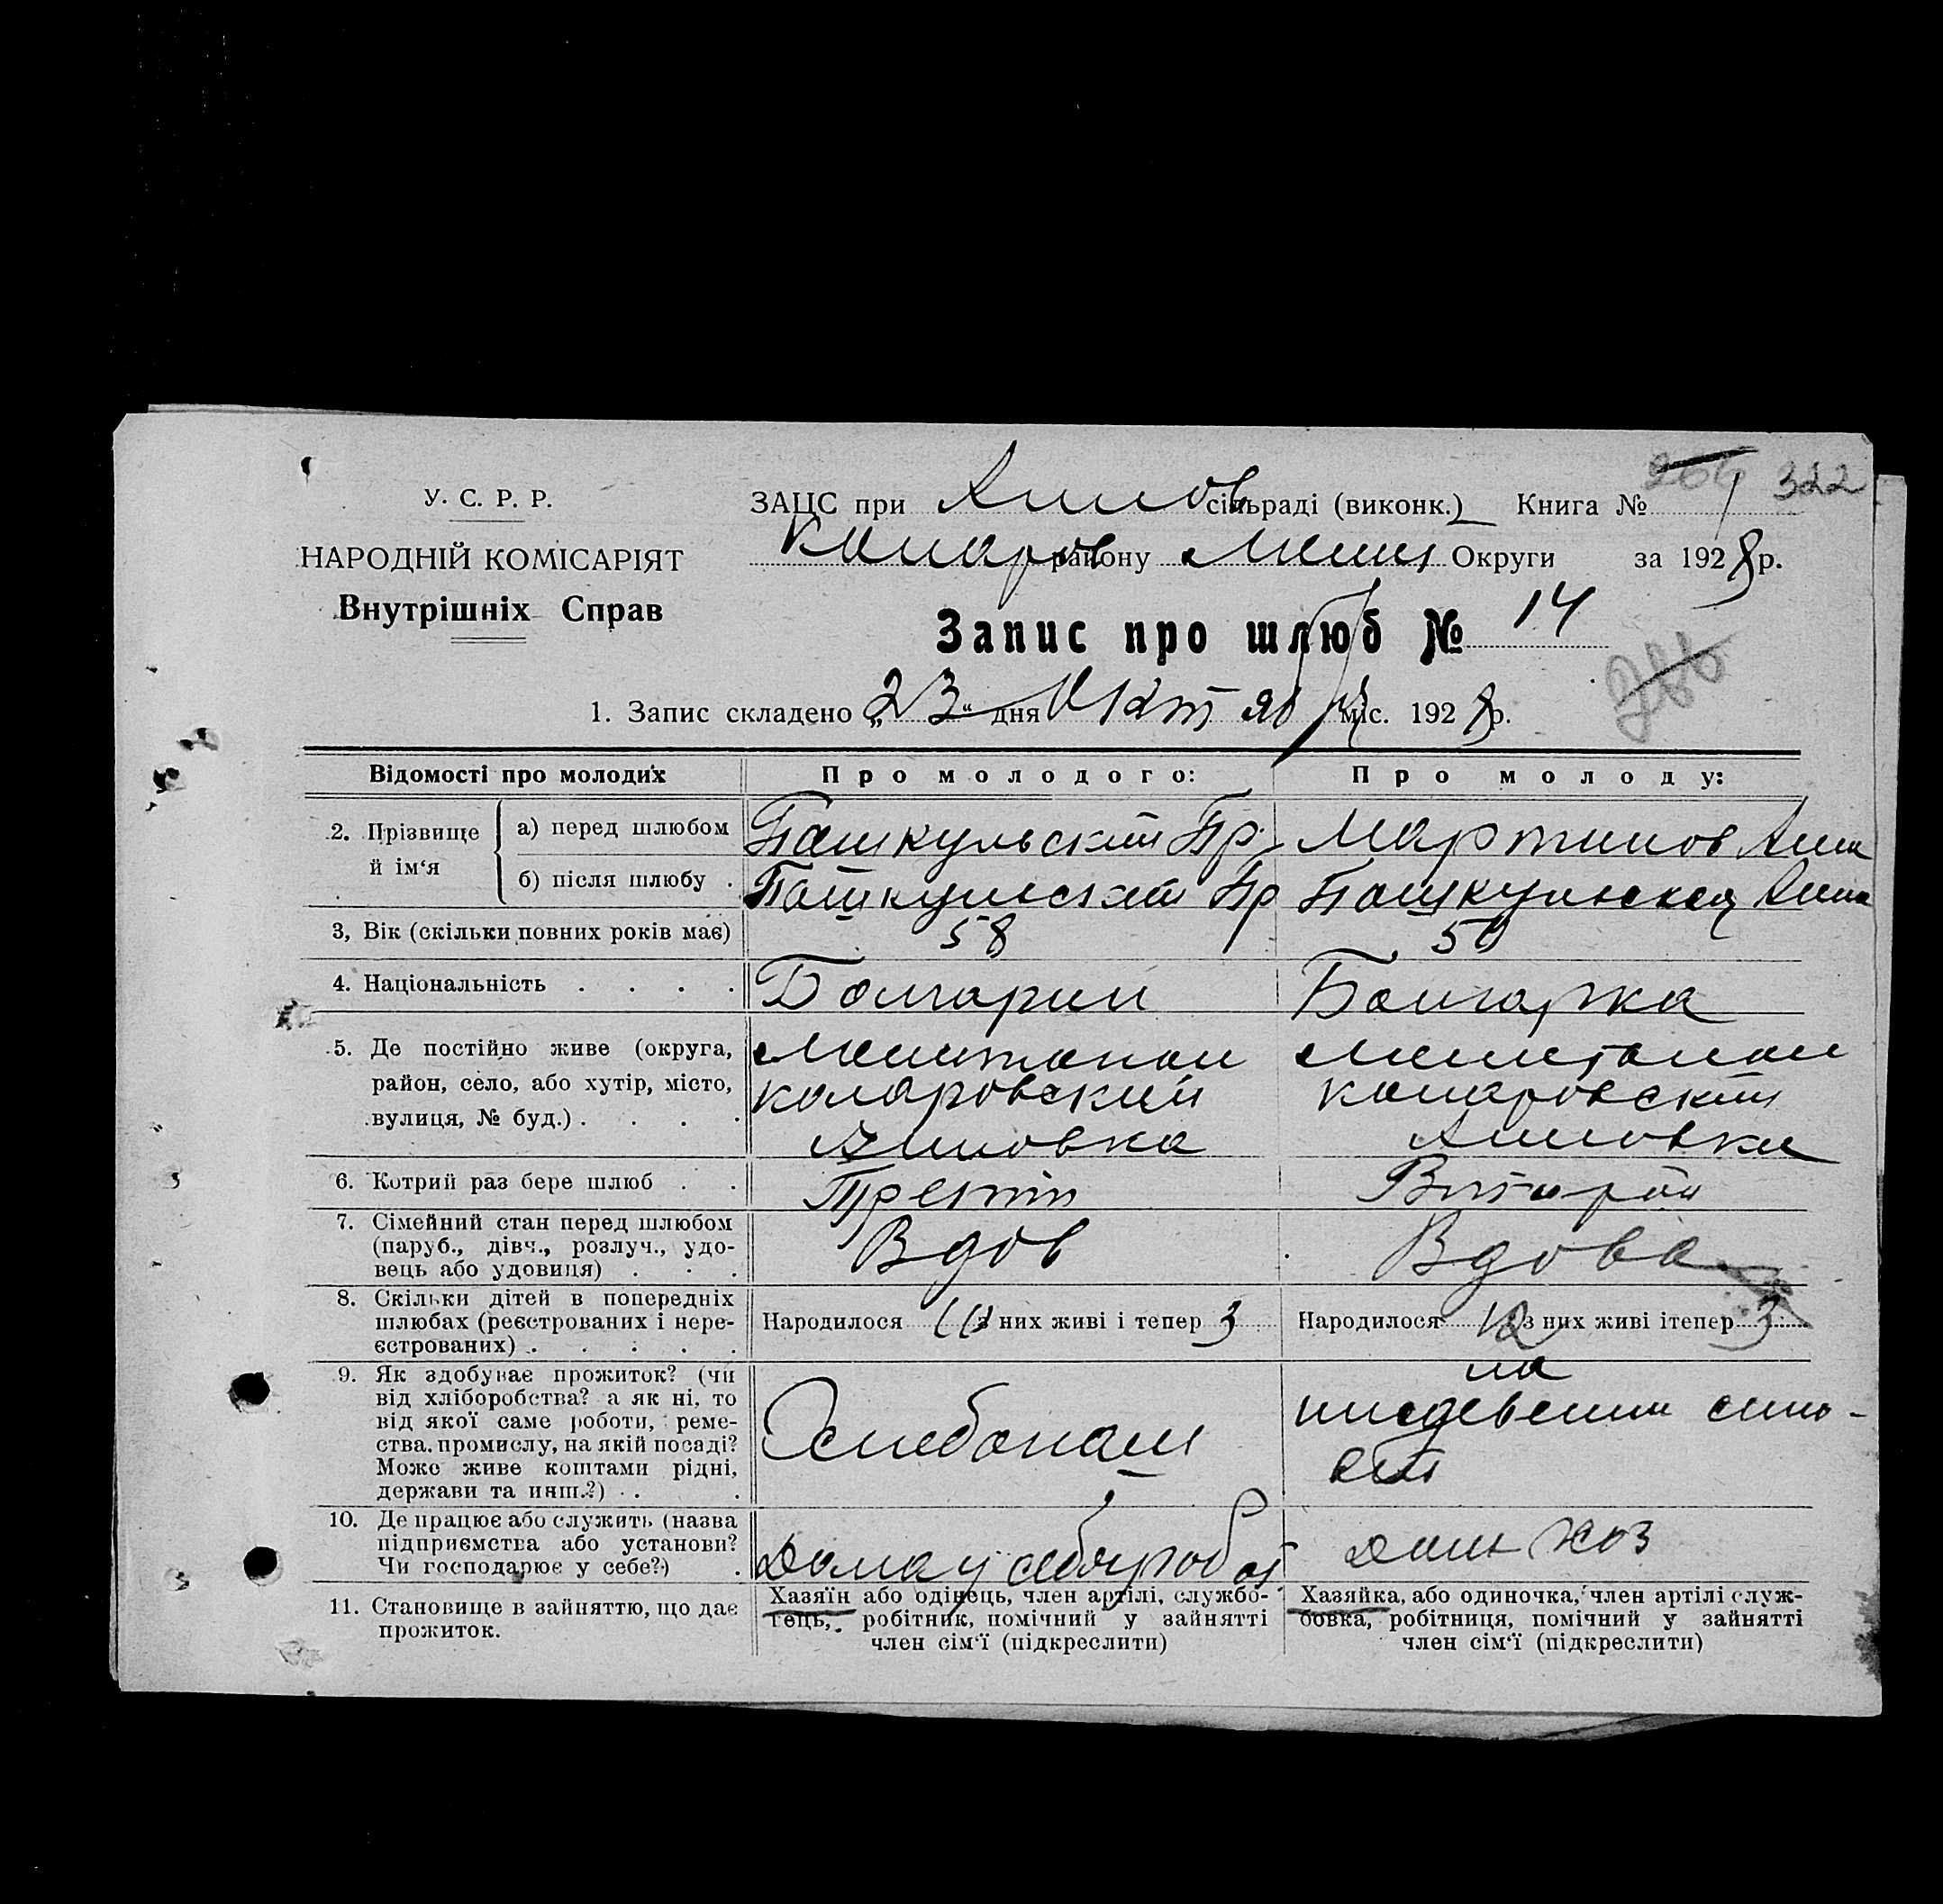 322
У. С. Р. Р.
ЗАЦС при сільраді (виконк.) Книга № 1
НАРОДНІЙ КОМІСАРІЯТ
Коларов району Мелит Округи за 1928 р.
Внутрішніх Справ
Запис про шлюб № 14
1. Запис складено „23“ дня Октября міс. 1928 р.
Відомості про молодих
Про молодого:
Про молоду:
2. Прізвище й ім‘я
а) перед шлюбом
Пашкульский Пр.
Мартинов Анна
б) після шлюбу .
Пашкульский Пр
Пашкульская Анна
3, Вік (скільки повних років має)
58
50
4. Національність . . . .
Болгарин
Болгарка
5. Де постійно живе (округа,
район, село, або хутір, місто,
вулиця, № буд.) . . . .
Мелитопол
коларовский
Мелитопол
коларовский
6. Котрий раз бере шлюб . .
Третій
Второй
7. Сімейний стан перед шлюбом
(паруб., дівч., розлуч., удо-
вець або удовиця) . . .
Вдов
Вдова
8. Скільки дітей в попередніх
шлюбах (реєстрованих і нере-
єстрованих) . . . . .
Народилося з них живі і тепер 3
Народилося 12 з них живі ітепер 3
9. Як здобуває прожиток? (чи
від хліборобства? а як ні, то
від якої саме роботи, реме-
ства, промислу, на якій посаді?
Може живе коштами рідні,
держави та инш.?) . . .
на
10. Де працює або служить (назва
підприємства або установи?
Чи господарює у себе?) .
Дома у себя
дом хоз
11. Становище в зайняттю, що дає
прожиток.
Хазяїн або одінець, член артілі, службо-
вець, робітник, помічний у зайнятті
член сім‘ї (підкреслити)
Хазяйка, або одиночка, член артілі служ-
бовка, робітниця, помічний у зайнятті
член сім‘ї (підкреслити)